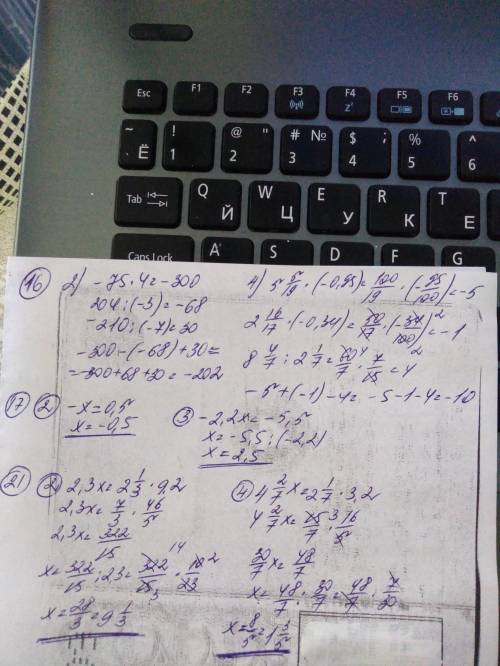 Esc F1 F2 F3 F4 F5 F6
~ ` Ё ! 1 @ " 2 # № 3 $ ; 4 % 5 ^ 6
Tab Q Й W Ц E У R К T Е
Caps Lock A S D F G
16 2) -75·4=-300
204:(-3)=-68
-210:(-7)=30
-300-(-68)+30=
=-300+68+30=-202
4) 5 5/19·(-0,95)=100/19·(-95/100)=-5
2 16/17·(-0,34)=50/17·(-34/100)=-1
8 4/7:2 1/7=60/7·7/15=4
-5+(-1)-4=-5-1-4=-10
17 2 -x=0,5
x=-0,5
3 -2,2x=-5,5
x=-5,5:(-2,2)
x=2,5
21 2 2,3x=2 1/3·9,2
2,3x=7/3·46/5
2,3x=322/15
x=322/15:2,3=322/15·10/23
x=28/3=9 1/3
4 4 2/7x=2 1/7·3,2
4 2/7x=15/7·16/5
30/7x=48/7
x=48/7:30/7=48/7·7/30
x=8/5=1 3/5